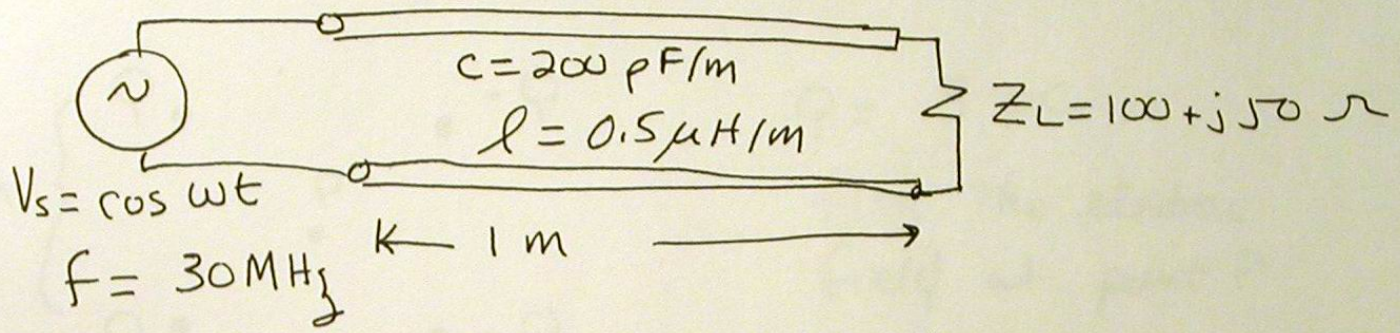 ~
c = 200 pF/m
l = 0.5 μH/m
Z_L = 100 + j 50 Ω
V_s = cos wt
1 m
f = 30 MHz